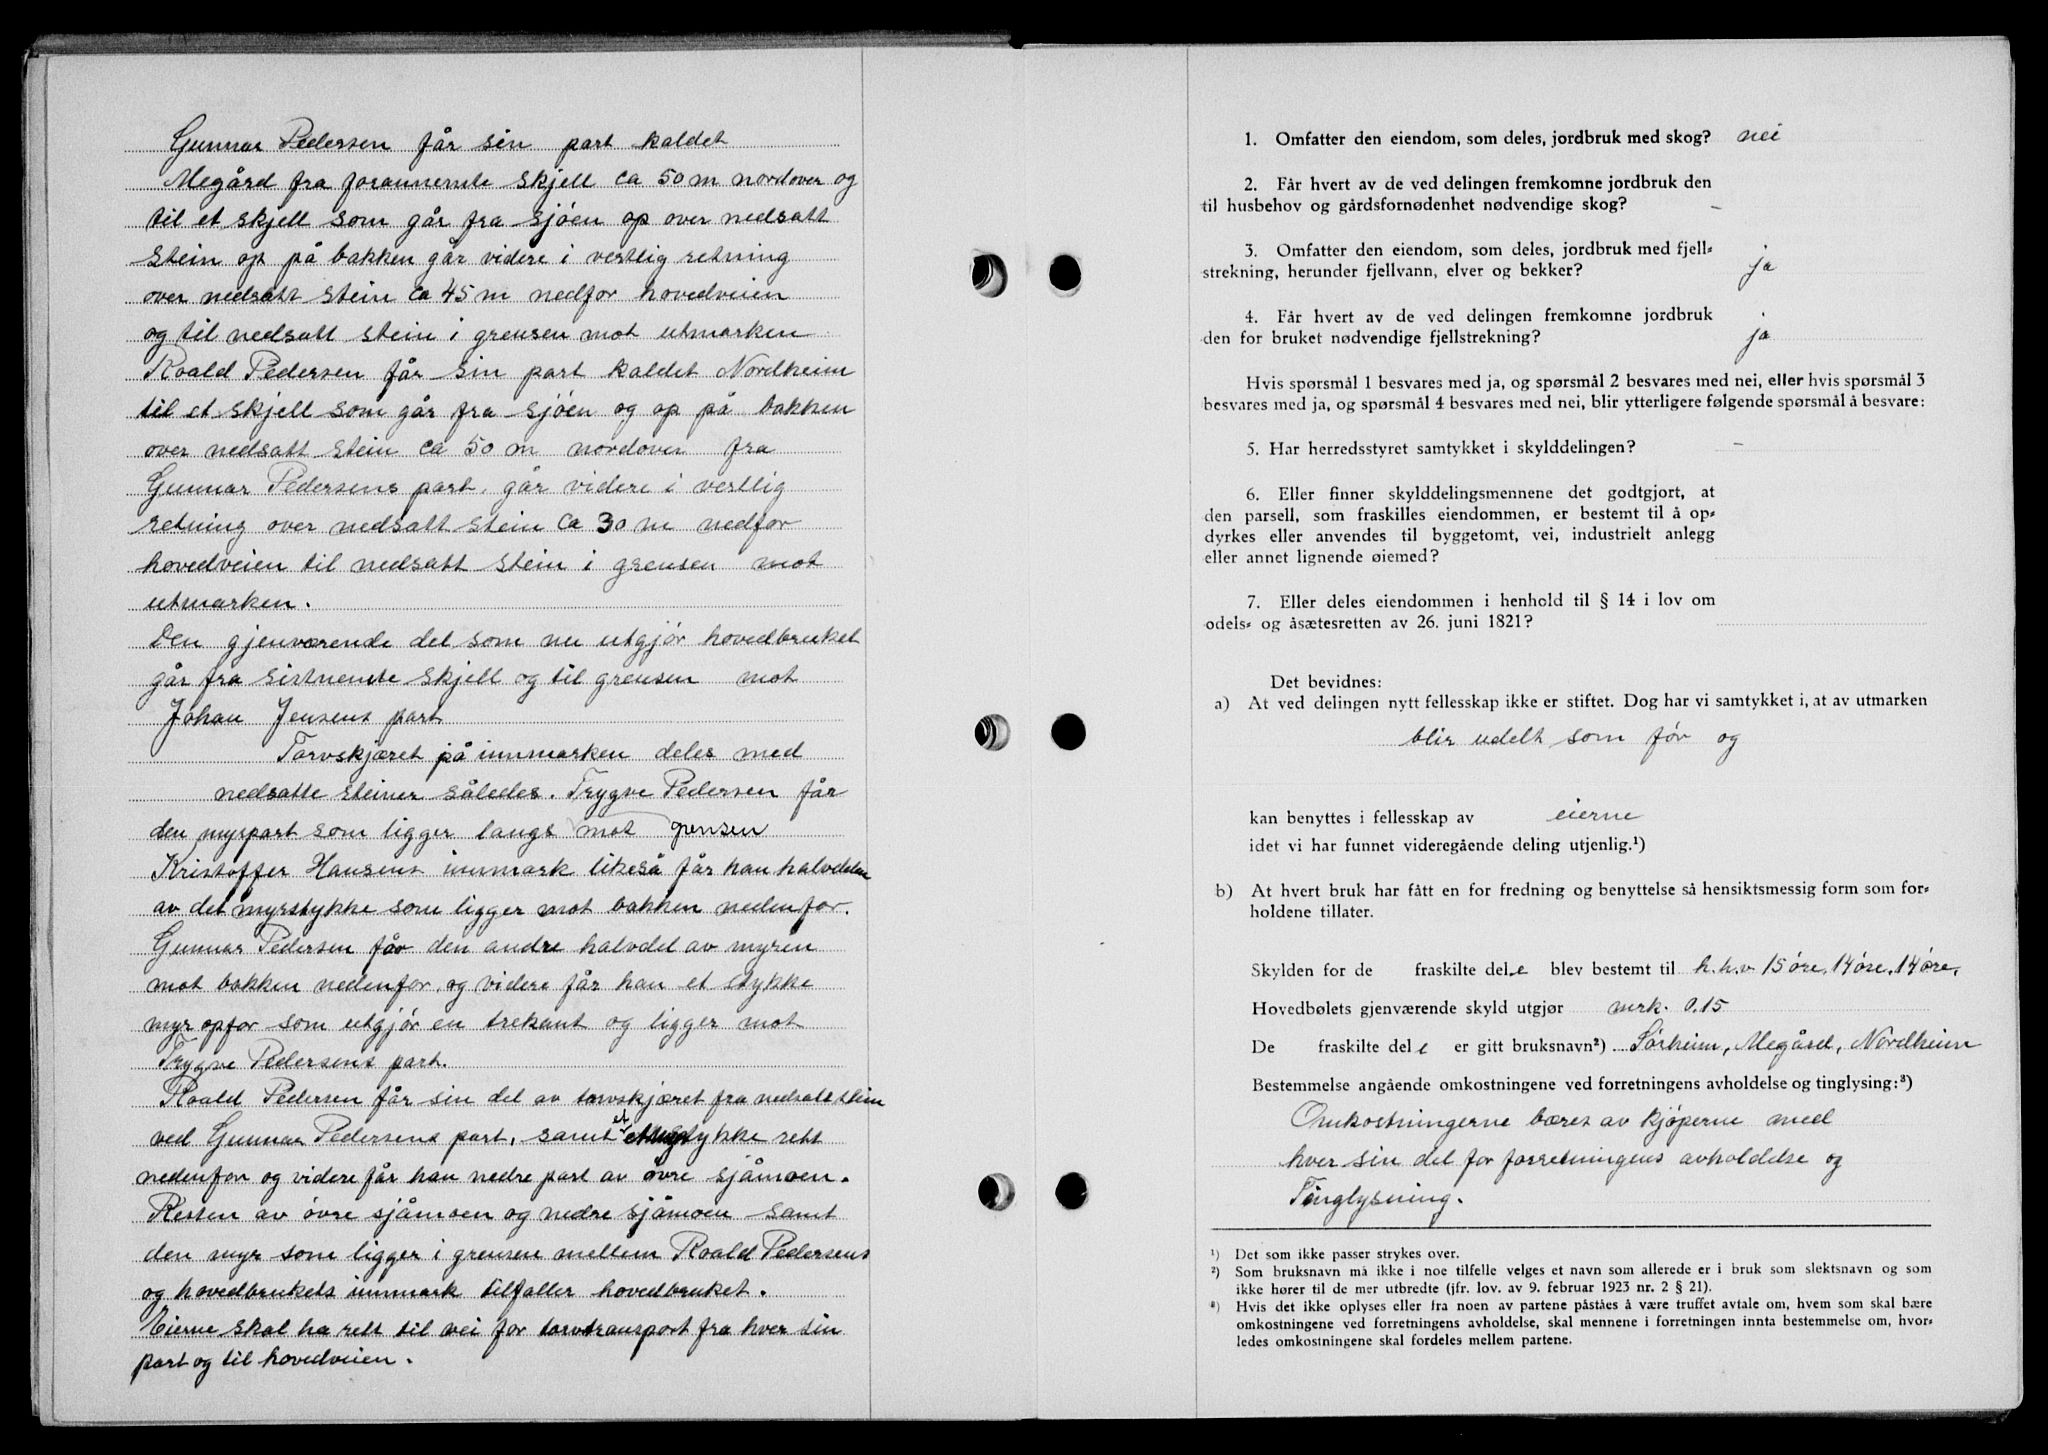 Gunnar Pedersen får sin part kaldet
Megård fra forannemte skjell ca 50 m nordover og
til et skjell som går fra sjøen op over nedsatt
stein op på bakken går videre i vestlig retning
over nedsatt stein ca 45 m nedfor hovedveien
og til nedsatt stein i grensen mot utmarken
Roald Pedersen får sin part kaldet Nordheim
til et skjell som går fra sjøen og op på bakken
over nedsatt stein ca 50 m nordover fra
Gunnar Pedersens part, går videre i vestlig
retning over nedsatt stein ca 30 m nedfor
hovedveien til nedsatt stein i grensen mot
utmarken.
Den gjenværende del som nu utgjør hovedbruket
går fra sistnemte skjell og til grensen mot
Johan Jensens part
Torvskjæret på innmarken deles med
nedsatte steiner således. Trygve Pedersen får
den myrpart som ligger langs mot grensen
Kristoffer Hansens innmark likeså får han halvdelen
av det myrstykke som ligger mot bakken nedenfor.
Gunnar Pedersen får den andre halvdel av myren
mot bakken nedenfor, og videre får han et stykke
myr opfor som utgjør en trekant og ligger mot
Trygve Pedersens part.
Roald Pedersen får sin del av torvskjæret fra nedsatt stein
ved Gunnar Pedersens part, samt et stykke rett
nedenfor og videre får han nedre part av øvre sjåmoen.
Resten av øvre sjåmoen og nedre sjåmoen samt
den myr som ligger i grensene mellem Roald Pedersens
og hovedbrukets innmark tilfaller hovedbruket.
Eierne skal ha rett til vei for torvtransport fra hver sin
part og til hovedveien.
1. Omfatter den eiendom, som deles, jordbruk med skog? nei
2. Får hvert av de ved delingen fremkomne jordbruk den
til husbehov og gårdsfornødenhet nødvendige skog? –
3. Omfatter den eiendom, som deles, jordbruk med fjell-
strekning, herunder fjellvann, elver og bekker? ja
4. Får hvert av de ved delingen fremkomne jordbruk
den for bruket nødvendige fjellstrekning? ja
Hvis spørsmål 1 besvares med ja, og spørsmål 2 besvares med nei, eller hvis spørsmål 3
besvares med ja, og spørsmål 4 besvares med nei, blir ytterligere følgende spørsmål å besvare:
5. Har herredsstyret samtykket i skylddelingen? –
6. Eller finner skylddelingsmennene det godtgjort, at
den parsell, som fraskilles eiendommen, er bestemt til å op-
dyrkes eller anvendes til byggetomt, vei, industrielt anlegg
eller annet lignende øiemed?
7. Eller deles eiendommen i henhold til § 14 i lov om
odels- og åsætesretten av 26. juni 1821?
Det bevidnes:
a) At ved delingen nytt fellesskap ikke er stiftet. Dog har vi samtykket i, at av utmarken
blir udelt som før og
kan benyttes i fellesskap av eierne
idet vi har funnet videregående deling utjenlig.¹)
b) At hvert bruk har fått en for fredning og benyttelse så hensiktsmessig form som for-
holdene tillater.
Skylden for de fraskilte dele blev bestemt til h.h.v 15 øre, 14 øre, 14 øre,
Hovedbølets gjenværende skyld utgjør mrk. 0,15
De fraskilte dele er gitt bruksnavn²) Sørheim, Megård, Nordheim
Bestemmelse angående omkostningene ved forretningens avholdelse og tinglysing:³)
Omkostningerne bæres av kjøperne med
hver sin del for forretningens avholdelse og
Tinglysning.
¹) Det som ikke passer strykes over.
²) Som bruksnavn må ikke i noe tilfelle velges et navn som allerede er i bruk som slektsnavn og som
ikke hører til de mer utbredte (jfr. lov. av 9. februar 1923 nr. 2 § 21).
³) Hvis det ikke oplyses eller fra noen av partene påståes å være truffet avtale om, hvem som skal bære
omkostningene ved forretningens avholdelse, skal mennene i forretningen innta bestemmelse om, hvor-
ledes omkostningene skal fordeles mellem partene.